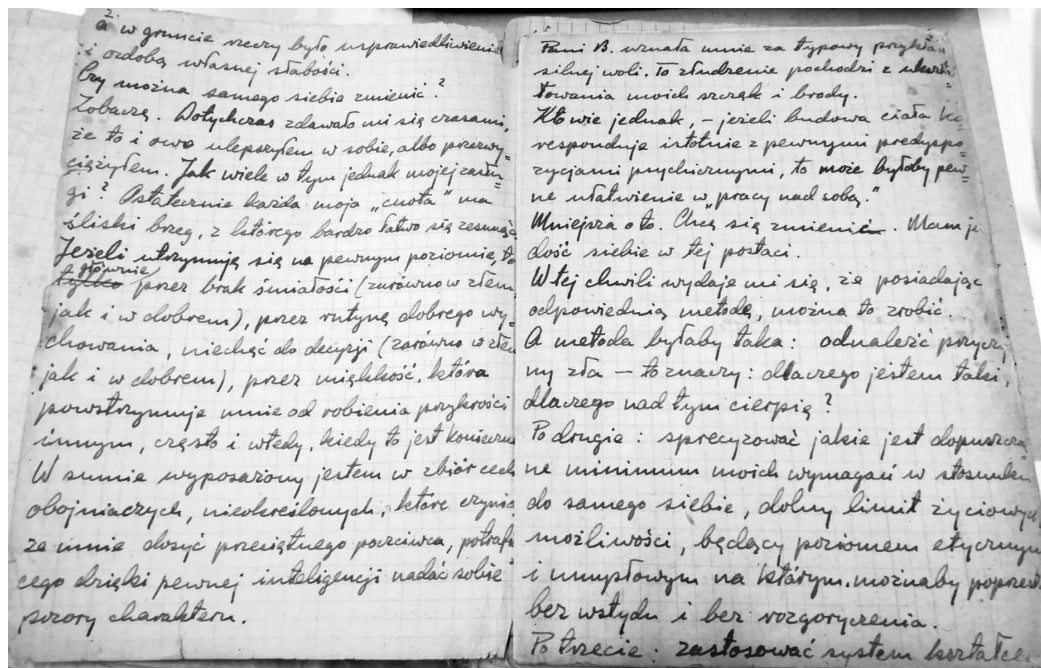 2.
a w gruncie rzeczy było usprawiedliwieniem
i ozdobą własnej słabości.
Czy można samego siebie zmienić?
Zobaczę. Dotychczas zdawało mi się czasami,
że to i owo ulepszyłem w sobie, albo przezwy=
ciężyłem. Jak wiele w tym jednak mojej zasłu=
gi? Ostatecznie każda moja „cnota” ma
śliski brzeg, z którego bardzo łatwo się zesunąć
Jeżeli utrzymuję się na pewnym poziomie, to
głównie
tylko przez brak śmiałości (zarówno w złem,
jak i w dobrem), przez rutynę dobrego wy=
chowania, niechęć do decyzji (zarówno w złem
jak i w dobrem), przez miękkość, która
powstrzymuje mnie od robienia przykrości
innym, często i wtedy, kiedy to jest konieczne
W sumie wyposażony jestem w zbiór cech
obojniaczych, nieokreślonych, które czynią
ze mnie dosyć przeciętnego poczciwca, potrafią
cego dzięki pewnej inteligencji nadać sobie
pozory charakteru.
Pani B. uznała mnie za typowy przykład
silnej woli. To złudzenie pochodzi z ukształ=
towania moich szczęk i brody.
Kto wie jednak, – jeżeli budowa ciała ko=
responduje istotnie z pewnymi predyspo=
zycjami psychicznymi, to może byłoby pew=
ne ułatwienie w „pracy nad sobą.”
Mniejsza o to. Chcę się zmienić. Mam już
dość siebie w tej postaci.
W tej chwili wydaje mi się, że posiadając
odpowiednią metodę, można to zrobić.
A metoda byłaby taka: odnaleźć przyczy
ny zła – to znaczy: dlaczego jestem taki,
dlaczego nad tym cierpię?
Po drugie: sprecyzować jakie jest dopuszczal
ne minimum moich wymagań w stosunku
do samego siebie, dolny limit życiowych
możliwości, będący poziomem etycznym
i umysłowym na którym możnaby poprzest
bez wstydu i bez rozgoryczenia.
Po trzecie: zastosować system kształce